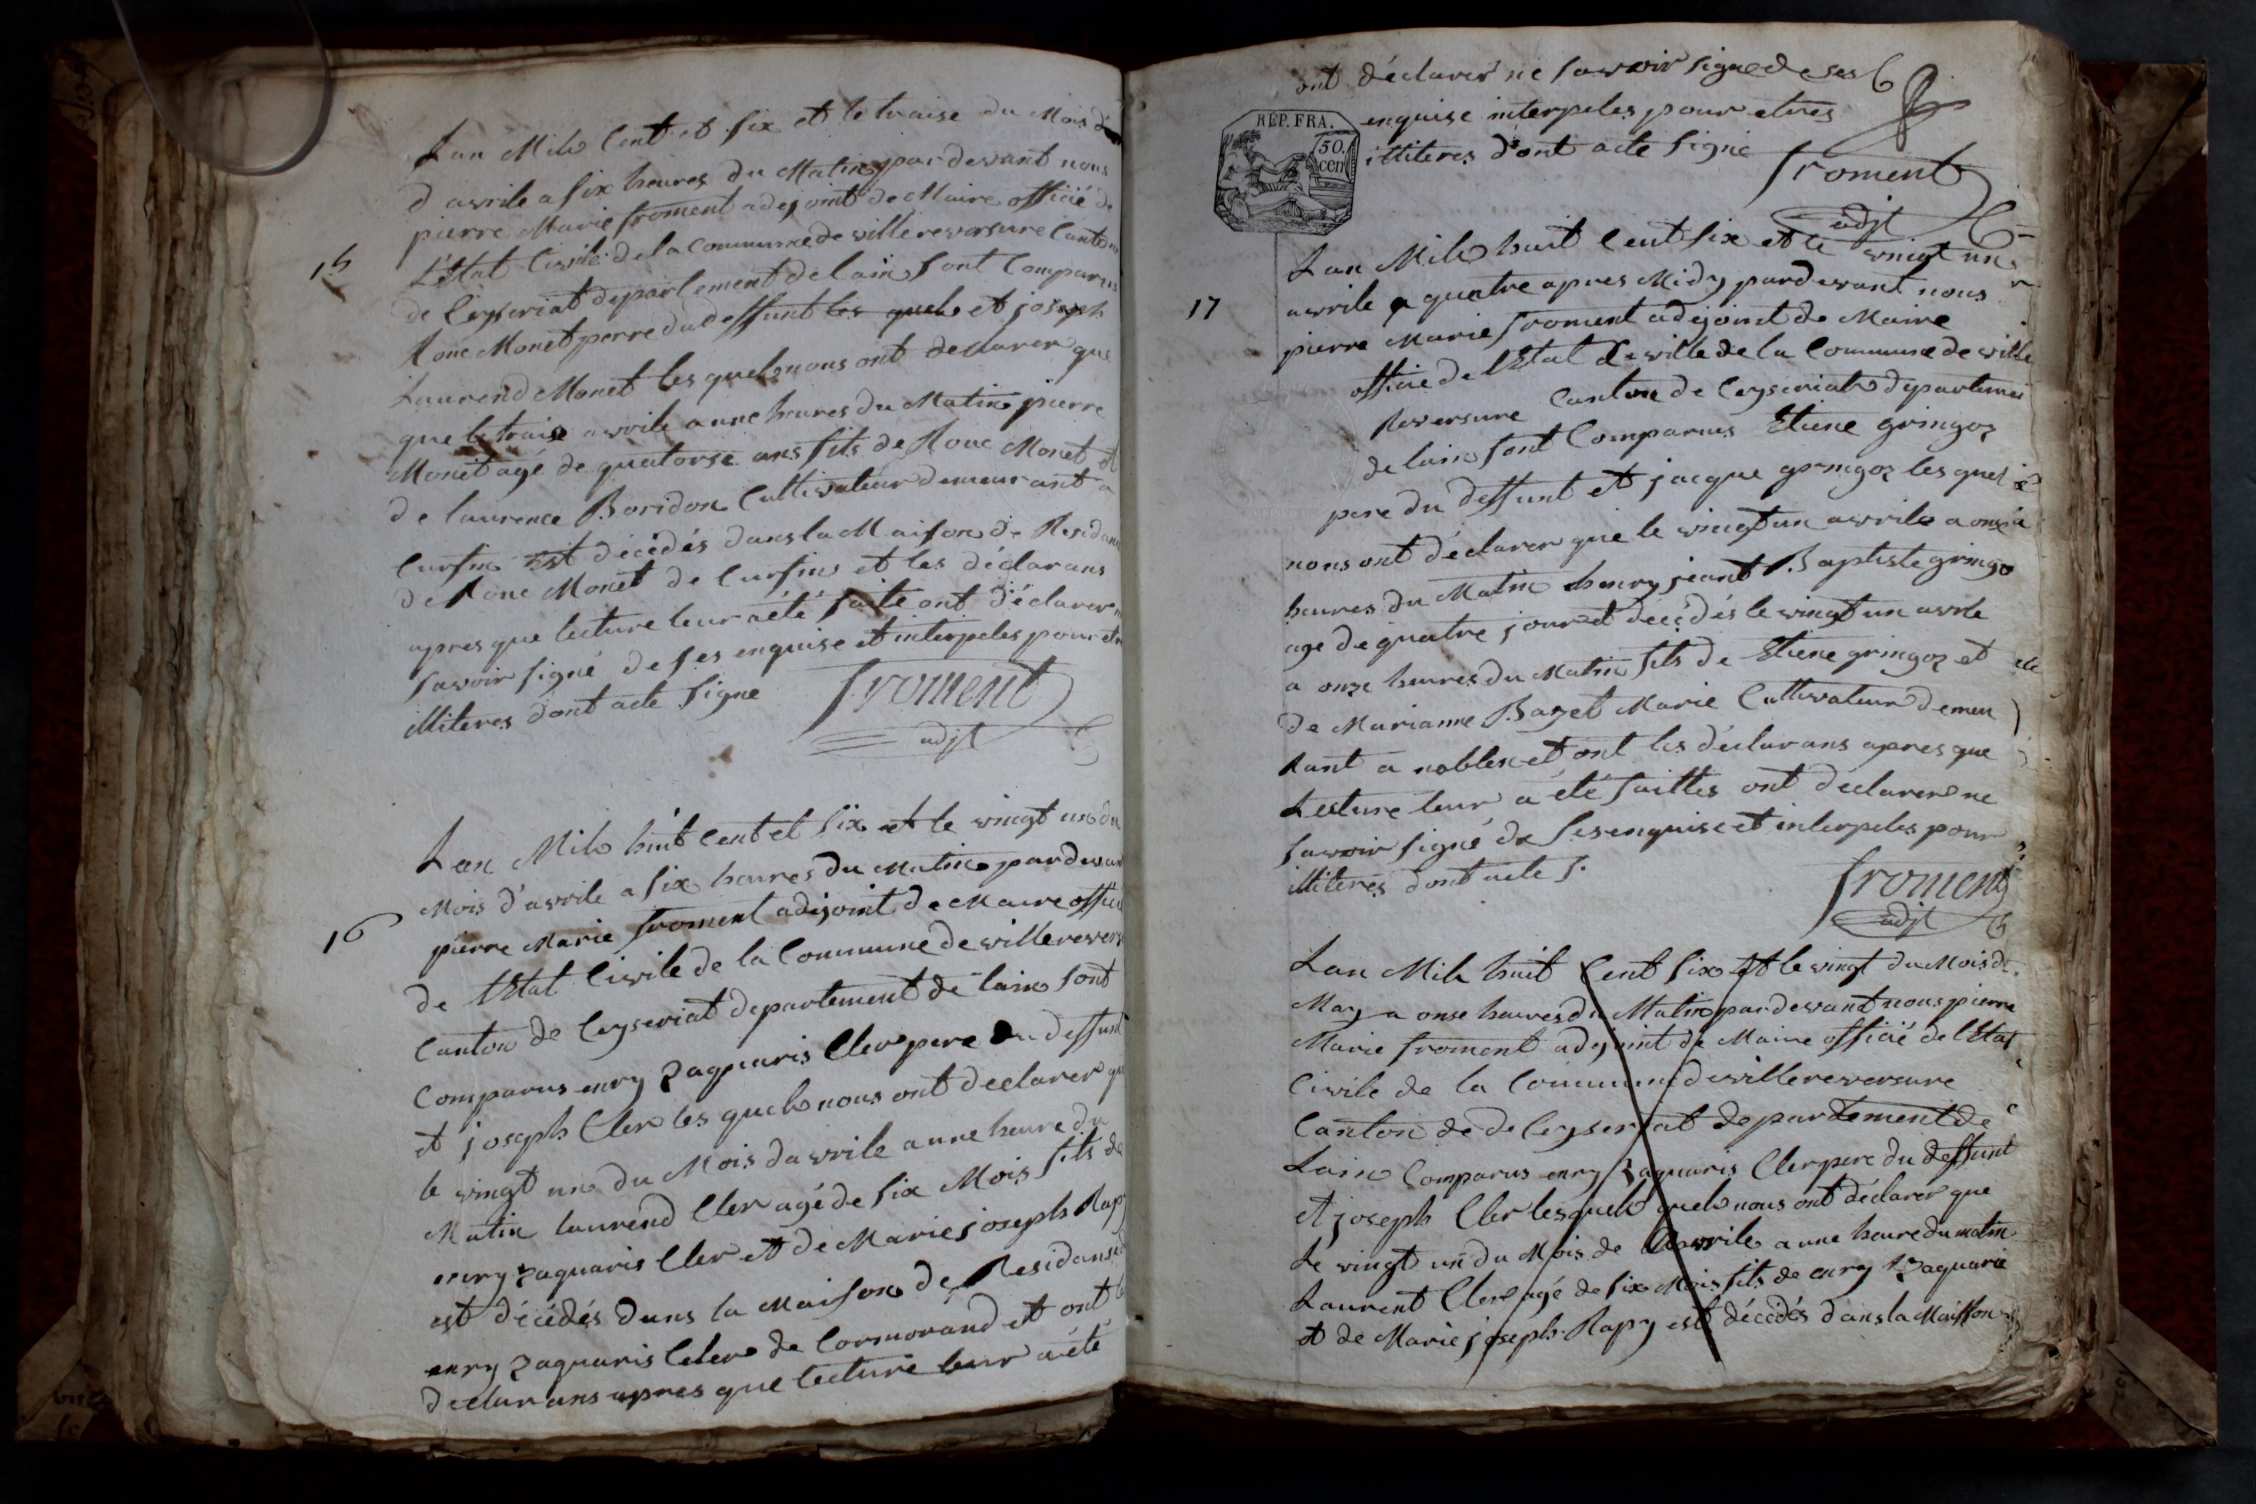 Lan Mile Cent et Six et le traise du Mois d
d avrile a six heures du Matin par devant nous
pierre Marie froment adejoint de Maire officié de
15
L'Etat Civile de la Commune de villereversure Canton
de Ceyseriat departement de lain sont Comparus
Rouc Monet perre du deffunt les quels et joseph
Laurend Monet les quels nous ont declarer que
que le traise avrile a une heures du Matin pierre
Monet agé de quatorse ans fils de Rouc Monet et
de laurence Boridon Cultivateur demeurant a
Cursin Est décédés dans la Maison de Residan
de Rouc Monet de Cursin et les déclarans
apres que lecture leur a été faite ont déclarer n
savoir signé de ses enquise et interpeles pour etre
illiteres dont acte signe
froment
adjt
Lan Mile huit Cent et six et le vingt un du
Mois d'avrile a six heures du Matin par devan
16
pierre Marie froment adejoint de Maire officié
de l'Etat Civile de la Commune de villerevers
Canton de Ceyseriat departement de lain sont
Comparus enry Zaquaris Cler pere du deffunt
et joseph Cler les quels nous ont declarer qu
le vingt un du Mois davrile a une heure du
Matin laurend Cler agé de six Mois fils de
enry Zaquaris Cler et de Marie joseph Rapy
est décédés dans la Maison de Residans
enry Zaquaris Celer de Cormorand et ont l
declarans apres que lecture leur a été
ont déclarer ne savoir signe de ses
enquise interpeles pour etres
RÉP. FRA.
50.
cen
illiteres dont acte signe
froment
adjt
Lan Mile huit Cent six et le vingt un
17
avrile a quatre apres Midy par devant nous
pierre Marie froment adejoint de Maire
officié de l'Etat Civille de la Commune de ville
Reversure Canton de Ceyseriat departeme
de lain sont Comparus Etiene gringoz
pere du deffunt et jacque gringoz les quel
nous ont déclarer que le vingt un avrile a onze
heures du Matin henry jeant Baptiste gringo
age de quatre jour et décédés le vingt un avrile
a onze heures du Matin fils de Etiene gringoz et
de Marianne Bazet Marie Cultivateur demeu
Rant a noblen et ont les déclarans apres que
Lecture leur a été faittes ont declarer ne
savoir signé de ses enquise et interpeles pour
illiteres dont acte s.
froment
adjt
Lan Mile huit Cent six Et le vingt du Mois de
May a onse heures du Matin par devant nous pierre
Marie froment adejoint de Maire officié de l'Etat
Civile de la Commune de villereversure
Canton de de Ceyseriat departement de
Lain Comparus enry Zaquaris Cler pere du deffunt
et joseph Cler les quels quels nous ont déclarer que
Le vingt un du Mois de avrile a une heure du matin
Laurent Cler agé de six Mois fils de enry Zaquarie
et de Marie joseph Rapy est décédés dans la Maisson